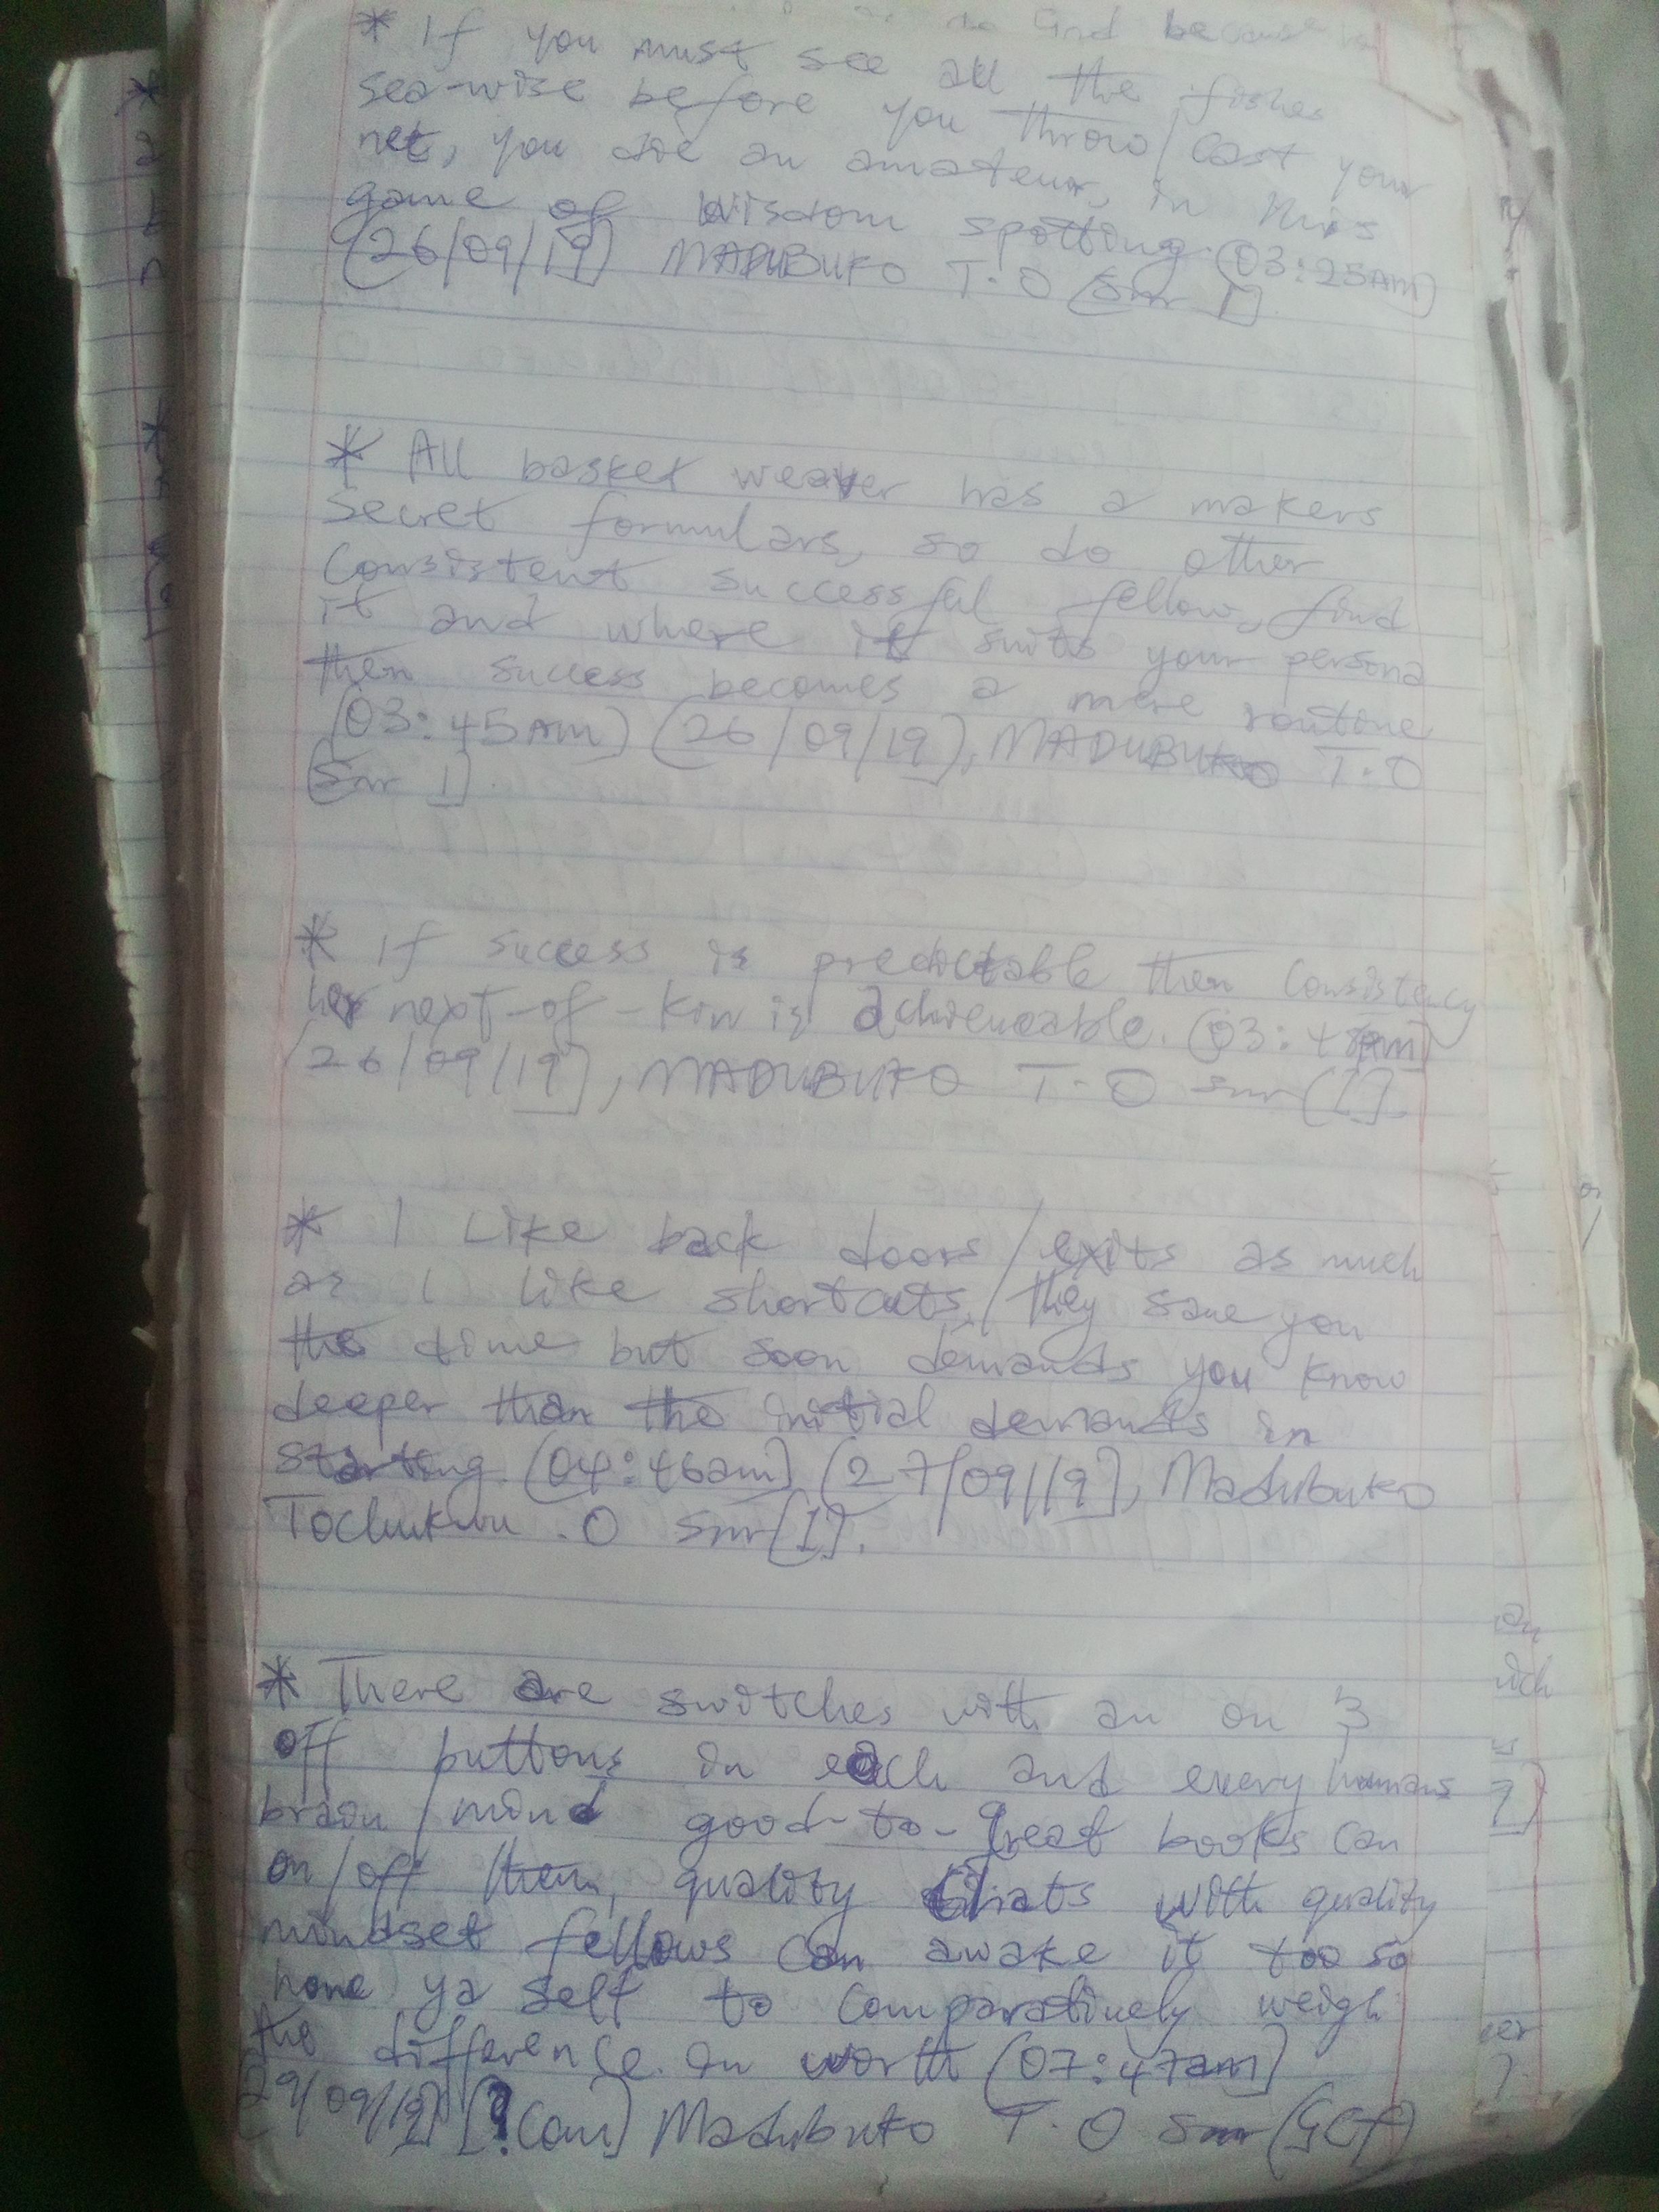 God because
* If you must see all the fishes
sea-wise before you throw/cast your
net, you are an amateur, in this
game of wisdom spotting. (03:25AM)
(26/09/19) MADUBUKO T.O (Snr I).
* All basket weaver has a makers
secret formulars, so do other
consistent successful fellow, find
it and where it suits your persona
then success becomes a mere routine
(03:45AM) (26/09/19), MADUBUKO T.O
(Snr I).
* If success is predictable then consistency
her next-of-kin is achieveable. (03:48AM)
(26/09/19), MADUBUKO T.O snr (I).
* I Like back doors/exits as much
as I like shortcuts, they save you
the time but soon demands you know
deeper than the initial demands in
starting. (04:46am) (27/09/19), Madubuko
Tochukwu .O snr(I).
* There are switches with an on &
off buttons in each and every humans
brain/mind good-to-great books can
on/off them, quality chats with quality
mindset fellows can awake it too so
hone ya self to comparatively weigh
the difference in worth (07:47am)
29/09/19) Madubuko T.O snr